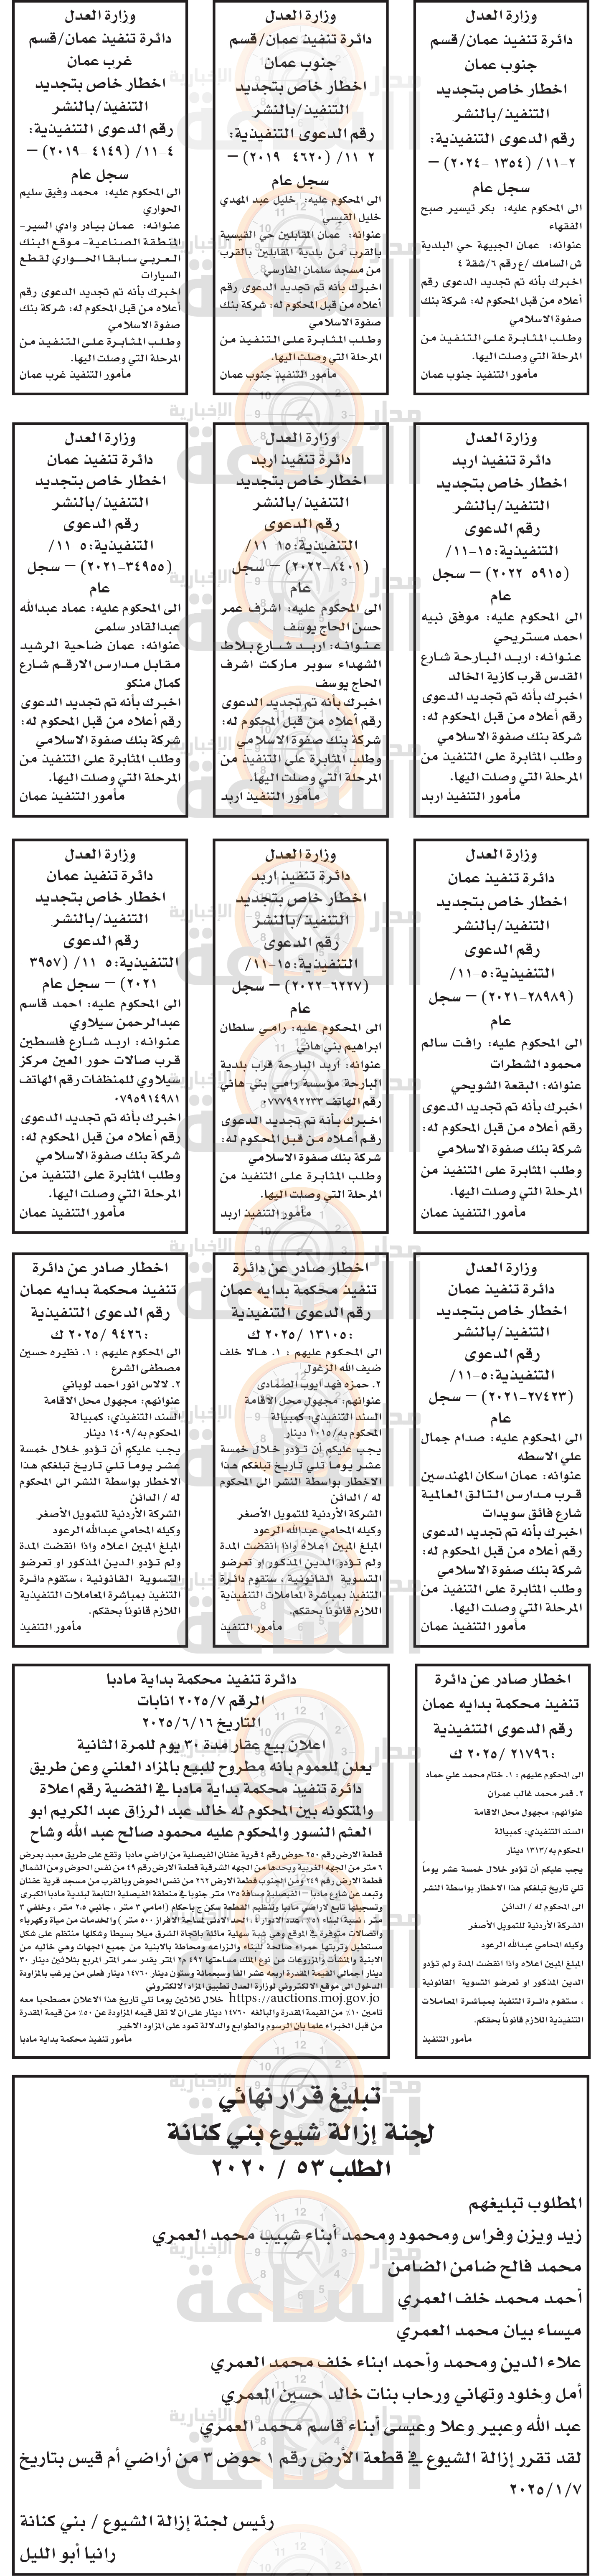 وزارة العدل
دائرة تنفيذ عمان/قسم
جنوب عمان
اخطار خاص بتجديد
التنفيذ/بالنشر
رقم الدعوى التنفيذية:
٢-١١/ (١٣٥٤ -٢٠٢٤) –
سجل عام
الى المحكوم عليه: بكر تيسير صبح
الفقهاء
عنوانه: عمان الجبيهة حي البلدية
ش السامك /ع رقم ٦/شقة ٤
اخبرك بأنه تم تجديد الدعوى رقم
أعلاه من قبل المحكوم له: شركة بنك
صفوة الاسلامي
وطلب المثابرة على التنفيذ من
المرحلة التي وصلت اليها.
مأمور التنفيذ جنوب عمان
وزارة العدل
دائرة تنفيذ عمان/قسم
جنوب عمان
اخطار خاص بتجديد
التنفيذ/بالنشر
رقم الدعوى التنفيذية:
٢-١١/ (٤٦٢٠ -٢٠١٩) –
سجل عام
الى المحكوم عليه: خليل عبد المهدي
خليل القيسي
عنوانه: عمان المقابلين حي القيسية
بالقرب من بلدية المقابلين بالقرب
من مسجد سلمان الفارسي
اخبرك بأنه تم تجديد الدعوى رقم
أعلاه من قبل المحكوم له: شركة بنك
صفوة الاسلامي
وطلب المثابرة على التنفيذ من
المرحلة التي وصلت اليها.
مأمور التنفيذ جنوب عمان
وزارة العدل
دائرة تنفيذ عمان/قسم
غرب عمان
اخطار خاص بتجديد
التنفيذ/بالنشر
رقم الدعوى التنفيذية:
٤-١١/ (٤١٤٩ -٢٠١٩) –
سجل عام
الى المحكوم عليه: محمد وفيق سليم
الحواري
عنوانه: عمان بيادر وادي السير-
المنطقة الصناعية- موقع البنك
العربي سابقا الحواري لقطع
السيارات
اخبرك بأنه تم تجديد الدعوى رقم
أعلاه من قبل المحكوم له: شركة بنك
صفوة الاسلامي
وطلب المثابرة على التنفيذ من
المرحلة التي وصلت اليها.
مأمور التنفيذ غرب عمان
وزارة العدل
دائرة تنفيذ اربد
اخطار خاص بتجديد
التنفيذ/بالنشر
رقم الدعوى
التنفيذية:١٥-١١/
(٥٩١٥-٢٠٢٢) – سجل
عام
الى المحكوم عليه: موفق نبيه
احمد مستريحي
عنوانه: اربد البارحة شارع
القدس قرب كازية الخالد
اخبرك بأنه تم تجديد الدعوى
رقم أعلاه من قبل المحكوم له:
شركة بنك صفوة الاسلامي
وطلب المثابرة على التنفيذ من
المرحلة التي وصلت اليها.
مأمور التنفيذ اربد
وزارة العدل
دائرة تنفيذ اربد
اخطار خاص بتجديد
التنفيذ/بالنشر
رقم الدعوى
التنفيذية:١٥-١١/
(٨٤٠١-٢٠٢٢) – سجل
عام
الى المحكوم عليه: اشرف عمر
حسن الحاج يوسف
عنوانه: اربد شارع بلاط
الشهداء سوبر ماركت اشرف
الحاج يوسف
اخبرك بأنه تم تجديد الدعوى
رقم أعلاه من قبل المحكوم له:
شركة بنك صفوة الاسلامي
وطلب المثابرة على التنفيذ من
المرحلة التي وصلت اليها.
مأمور التنفيذ اربد
وزارة العدل
دائرة تنفيذ عمان
اخطار خاص بتجديد
التنفيذ/بالنشر
رقم الدعوى
التنفيذية:٥-١١/
(٣٤٩٥٥-٢٠٢١) – سجل
عام
الى المحكوم عليه: عماد عبدالله
عبدالقادر سلمى
عنوانه: عمان ضاحية الرشيد
مقابل مدارس الارقم شارع
كمال منكو
اخبرك بأنه تم تجديد الدعوى
رقم أعلاه من قبل المحكوم له:
شركة بنك صفوة الاسلامي
وطلب المثابرة على التنفيذ من
المرحلة التي وصلت اليها.
مأمور التنفيذ عمان
وزارة العدل
دائرة تنفيذ عمان
اخطار خاص بتجديد
التنفيذ/بالنشر
رقم الدعوى
التنفيذية:٥-١١/
(٢٨٩٨٩-٢٠٢١) – سجل
عام
الى المحكوم عليه: رافت سالم
محمود الشطرات
عنوانه: البقعة الشويحي
اخبرك بأنه تم تجديد الدعوى
رقم أعلاه من قبل المحكوم له:
شركة بنك صفوة الاسلامي
وطلب المثابرة على التنفيذ من
المرحلة التي وصلت اليها.
مأمور التنفيذ عمان
وزارة العدل
دائرة تنفيذ اربد
اخطار خاص بتجديد
التنفيذ/بالنشر
رقم الدعوى
التنفيذية:١٥-١١/
(٦٢٢٧-٢٠٢٢) – سجل
عام
الى المحكوم عليه: رامي سلطان
ابراهيم بني هاني
عنوانه: اربد البارحة قرب بلدية
البارحة مؤسسة رامي بني هاني
رقم الهاتف ٠٧٧٧٩٩٢٢٣٣
اخبرك بأنه تم تجديد الدعوى
رقم أعلاه من قبل المحكوم له:
شركة بنك صفوة الاسلامي
وطلب المثابرة على التنفيذ من
المرحلة التي وصلت اليها.
مأمور التنفيذ اربد
وزارة العدل
دائرة تنفيذ عمان
اخطار خاص بتجديد
التنفيذ/بالنشر
رقم الدعوى
التنفيذية:٥-١١/ (٣٩٥٧-
٢٠٢١) – سجل عام
الى المحكوم عليه: احمد قاسم
عبدالرحمن سيلاوي
عنوانه: اربد شارع فلسطين
قرب صالات حور العين مركز
سيلاوي للمنظفات رقم الهاتف
٠٧٩٥٩١٤٩٨١
اخبرك بأنه تم تجديد الدعوى
رقم أعلاه من قبل المحكوم له:
شركة بنك صفوة الاسلامي
وطلب المثابرة على التنفيذ من
المرحلة التي وصلت اليها.
مأمور التنفيذ عمان
وزارة العدل
دائرة تنفيذ عمان
اخطار خاص بتجديد
التنفيذ/بالنشر
رقم الدعوى
التنفيذية:٥-١١/
(٢٧٤٢٣-٢٠٢١) – سجل
عام
الى المحكوم عليه: صدام جمال
علي الاسطه
عنوانه: عمان اسكان المهندسين
قرب مدارس التالق العالمية
شارع فائق سويدات
اخبرك بأنه تم تجديد الدعوى
رقم أعلاه من قبل المحكوم له:
شركة بنك صفوة الاسلامي
وطلب المثابرة على التنفيذ من
المرحلة التي وصلت اليها.
مأمور التنفيذ عمان
اخطار صادر عن دائرة
تنفيذ محكمة بدايه عمان
رقم الدعوى التنفيذية
:١٣١٠٥ /٢٠٢٥ ك
الى المحكوم عليهم : ١. هالا خلف
ضيف الله الزغول
٢. حمزه فهد ايوب الصمادى
عنوانهم: مجهول محل الاقامة
السند التنفيذي: كمبيالة
المحكوم به/١٠١٥ دينار
يجب عليكم أن تؤدو خلال خمسة
عشر يوماً تلي تاريخ تبلغكم هذا
الاخطار بواسطة النشر الى المحكوم
له / الدائن
الشركة الأردنية للتمويل الأصغر
وكيله المحامي عبدالله الرعود
المبلغ المبين اعلاه واذا انقضت المدة
ولم تؤدو الدين المذكور او تعرضو
التسوية القانونية ، ستقوم دائرة
التنفيذ بمباشرة المعاملات التنفيذية
اللازم قانوناً بحقكم.
مأمور التنفيذ
اخطار صادر عن دائرة
تنفيذ محكمة بدايه عمان
رقم الدعوى التنفيذية
:٩٤٢٦ /٢٠٢٥ ك
الى المحكوم عليهم : ١. نظيره حسين
مصطفى الشرع
٢. لالاس انور احمد لوباني
عنوانهم: مجهول محل الاقامة
السند التنفيذي: كمبيالة
المحكوم به/١٤٠٩ دينار
يجب عليكم أن تؤدو خلال خمسة
عشر يوماً تلي تاريخ تبلغكم هذا
الاخطار بواسطة النشر الى المحكوم
له / الدائن
الشركة الأردنية للتمويل الأصغر
وكيله المحامي عبدالله الرعود
المبلغ المبين اعلاه واذا انقضت المدة
ولم تؤدو الدين المذكور او تعرضو
التسوية القانونية ، ستقوم دائرة
التنفيذ بمباشرة المعاملات التنفيذية
اللازم قانوناً بحقكم.
مأمور التنفيذ
اخطار صادر عن دائرة
تنفيذ محكمة بدايه عمان
رقم الدعوى التنفيذية
:٢١٧٩٦ /٢٠٢٥ ك
الى المحكوم عليهم : ١. ختام محمد علي حماد
٢. قمر محمد غالب عمران
عنوانهم: مجهول محل الاقامة
السند التنفيذي: كمبيالة
المحكوم به/١٣١٣ دينار
يجب عليكم أن تؤدو خلال خمسة عشر يوماً
تلي تاريخ تبلغكم هذا الاخطار بواسطة النشر
الى المحكوم له / الدائن
الشركة الأردنية للتمويل الأصغر
وكيله المحامي عبدالله الرعود
المبلغ المبين اعلاه واذا انقضت المدة ولم تؤدو
الدين المذكور او تعرضو التسوية القانونية
، ستقوم دائرة التنفيذ بمباشرة المعاملات
التنفيذية اللازم قانوناً بحقكم.
مأمور التنفيذ
دائرة تنفيذ محكمة بداية مادبا
الرقم ٢٠٢٥/٧ انابات
التاريخ ٢٠٢٥/٦/١٦
اعلان بيع عقار مدة ٣٠ يوم للمرة الثانية
يعلن للعموم بانه مطروح للبيع بالمزاد العلني وعن طريق
دائرة تنفيذ محكمة بداية مادبا في القضية رقم اعلاة
والمتكونه بين المحكوم له خالد عبد الرزاق عبد الكريم ابو
العثم النسور والمحكوم عليه محمود صالح عبد الله وشاح
قطعة الارض رقم ٢٥٠ حوض رقم ٤ قرية عفنان الفيصلية من اراضي مادبا وتقع على طريق معبد بعرض
٦ متر من الجهه الغربية ويحدها من الجهه الشرقية قطعة الارض رقم ٤٩ من نفس الحوض ومن الشمال
قطعة الارض رقم ٢٤٩ ومن الجنوب قطعة الارض ٢٦٢ من نفس الحوض وبالقرب من مسجد قرية عفنان
وتبعد عن شارع مادبا – الفيصلية مسافة ١٣٥ متر جنوبا في منطقة الفيصلية التابعة لبلدية مادبا الكبرى
وتسجيلها تابع لاراضي مادبا وتنظيم القطعة سكن ج باحكام (امامي ٣ متر ، جانبي ٢،٥ متر ، وخلفي ٣
متر ، نسبة البناء ٥١٪ ، عدد الادوار ٤ ، الحد الادنى لمساحة الافراز ٥٠٠ متر ) والخدمات من مياة وكهرباء
واتصالات متوفرة في الموقع وهي شبة سهلية مائلة باتجاة الشرق ميلا بسيطا وشكلها منتظم على شكل
مستطيل وتربتها حمراء صالحة للبناء والزراعه ومحاطة بالابنية من جميع الجهات وهي خاليه من
الابنية والمنشأت والمزروعات من نوع الملك مساحتها ٤٩٢ م٢ المتر يقدر سعر المتر المربع بثلاثين دينار ٣٠
دينار اجمالي القيمة المقدرة اربعه عشر الفا وسبعمائة وستون دينار ١٤٧٦٠ دينار فعلى من يرغب بالمزاودة
الدخول الى موقع الالكتروني لوزارة العدل تطبيق المزاد الالكتروني
https://auctions.moj.gov.jo خلال ثلاثين يوما تلي تاريخ هذا الاعلان مصطحبا معه
تامين ١٠٪ من القيمة المقدرة والبالغه ١٤٧٦٠ دينار على ان لا تقل قيمة المزاودة عن ٥٠٪ من قيمة المقدرة
من قبل الخبراء علما بان الرسوم والطوابع والدلالة تعود على المزاود الاخير
مأمور تنفيذ محكمة بداية مادبا
تبليغ قرار نهائي
لجنة إزالة شيوع بني كنانة
الطلب ٥٣ / ٢٠٢٠
المطلوب تبليغهم
زيد ويزن وفراس ومحمود ومحمد أبناء شبيب محمد العمري
محمد فالح ضامن الضامن
أحمد محمد خلف العمري
ميساء بيان محمد العمري
علاء الدين ومحمد وأحمد ابناء خلف محمد العمري
أمل وخلود وتهاني ورحاب بنات خالد حسين العمري
عبد الله وعبير وعلا وعيسى أبناء قاسم محمد العمري
لقد تقرر إزالة الشيوع في قطعة الأرض رقم ١ حوض ٣ من أراضي أم قيس بتاريخ
٢٠٢٥/١/٧
رئيس لجنة إزالة الشيوع / بني كنانة
رانيا أبو الليل